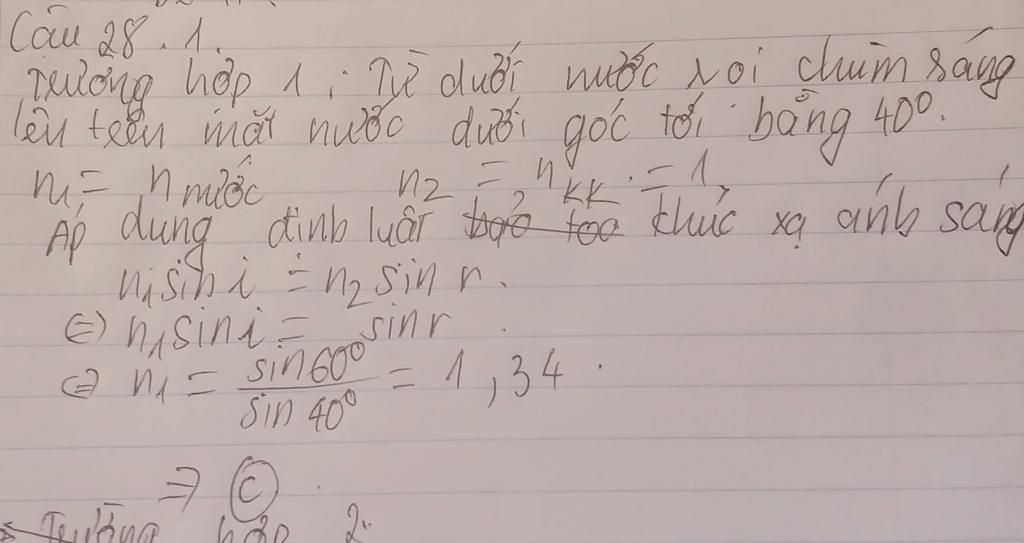 Câu 28.1.
Trường hợp 1: Từ dưới nước rọi chùm sáng
lên trên mặt nước dưới góc tới bằng 40°.
n₁ = n nước n₂ = n KK = 1
Áp dụng định luật khúc xạ ánh sáng
n₁sin i = n₂ sin r.
⇔ n₁sin i = sin r
⇔ n₁ = sin60° / sin 40° = 1,34.
⇒ C
Trường hợp 2: